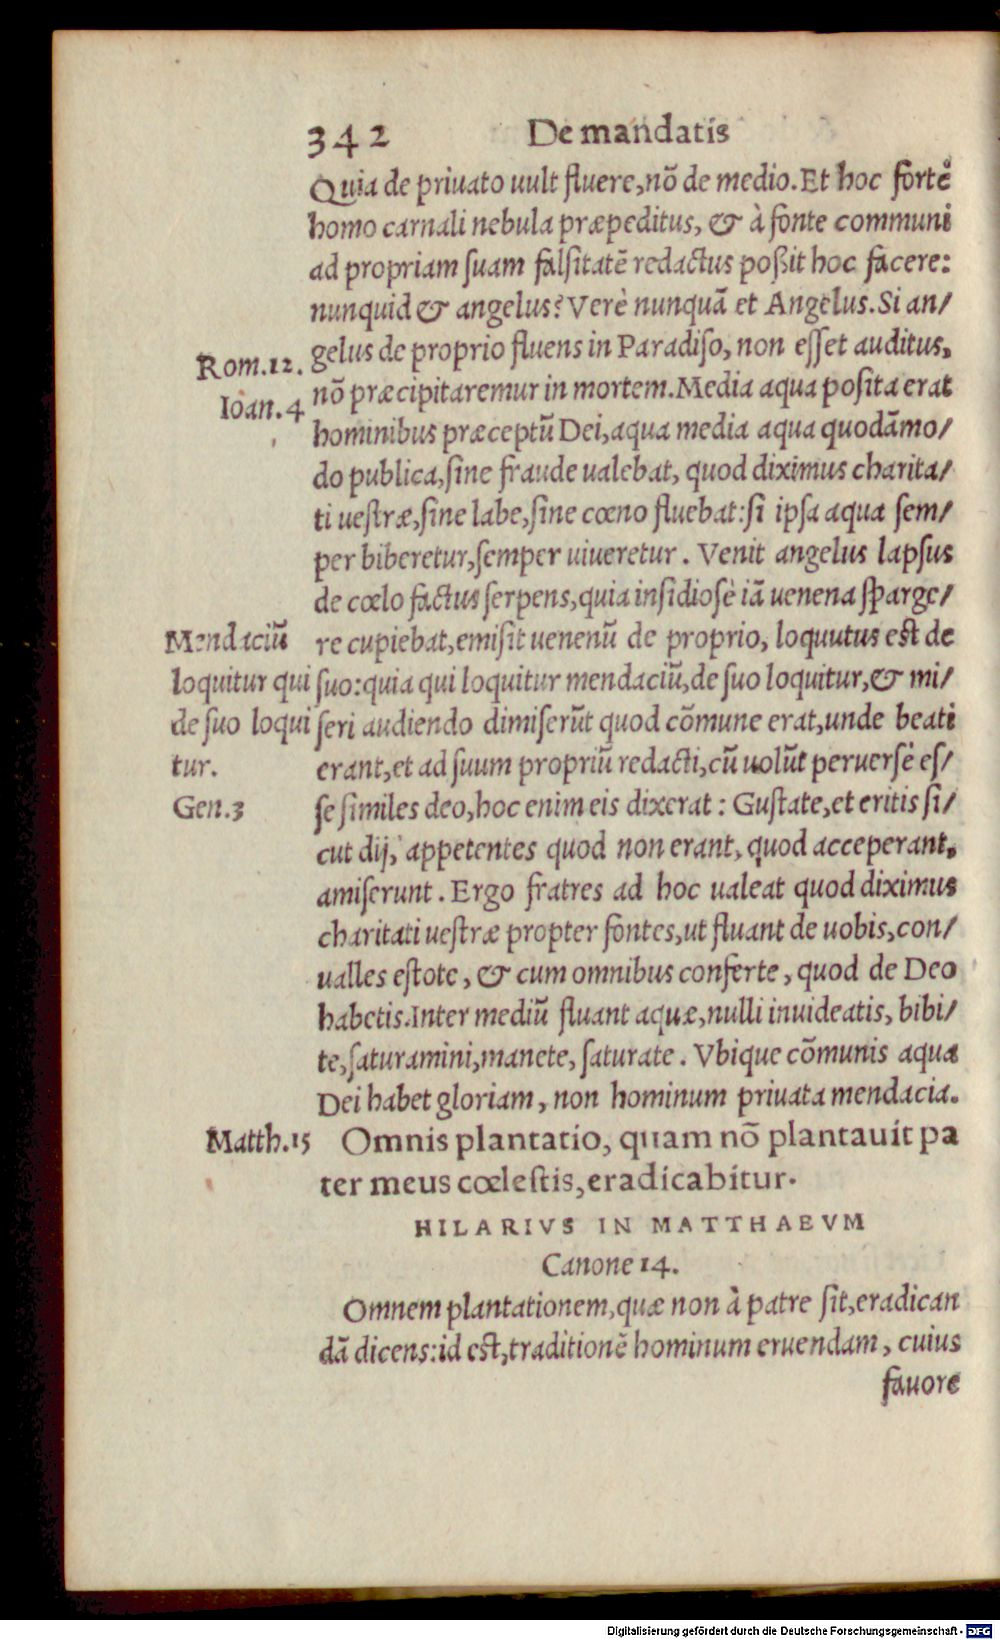 342 De mandatis
Quia de priuato uult fluere,nõ de medio.Et hoc fortè
homo carnali nebula præpeditus, & à fonte communi
ad propriam suam falsitatẽ redactus poßit hoc facere:
nunquid & angelus? Verè nunquã et Angelus.Si an/
Rom.12. gelus de proprio fluens in Paradiso, non esset auditus,
Ioan.4 nõ præcipitaremur in mortem.Media aqua posita erat
hominibus præceptũ Dei,aqua media aqua quodãmo/
do publica,sine fraude ualebat, quod diximus charita/
ti uestræ,sine labe,sine cœno fluebat:si ipsa aqua sem/
per biberetur,semper uiueretur. Venit angelus lapsus
de cœlo factus serpens,quia insidiosè iã uenena sparge/
Mendaciũ re cupiebat,emisit uenenũ de proprio, loquutus est de
loquitur qui suo:quia qui loquitur mendaciũ,de suo loquitur,& mi/
de suo loqui seri audiendo dimiserũt quod cõmune erat,unde beati
tur. erant,et ad suum propriũ redacti,cũ uolũt peruersè es/
Gen.3 se similes deo,hoc enim eis dixerat: Gustate,et eritis si/
cut dij, appetentes quod non erant, quod acceperant,
amiserunt. Ergo fratres ad hoc ualeat quod diximus
charitati uestræ propter fontes,ut fluant de uobis,con/
ualles estote, & cum omnibus conferte, quod de Deo
habetis.Inter mediũ fluant aquæ,nulli inuideatis, bibi/
te,saturamini,manete, saturate. Vbique cõmunis aqua
Dei habet gloriam, non hominum priuata mendacia.
Matth.15 Omnis plantatio, quam nõ plantauit pa
ter meus cœlestis,eradicabitur.
HILARIVS IN MATTHAEVM
Canone 14.
Omnem plantationem,quæ non à patre sit,eradican
dã dicens:id est,traditionẽ hominum eruendam, cuius
fauore
Digitalisierung gefördert durch die Deutsche Forschungsgemeinschaft - DFG